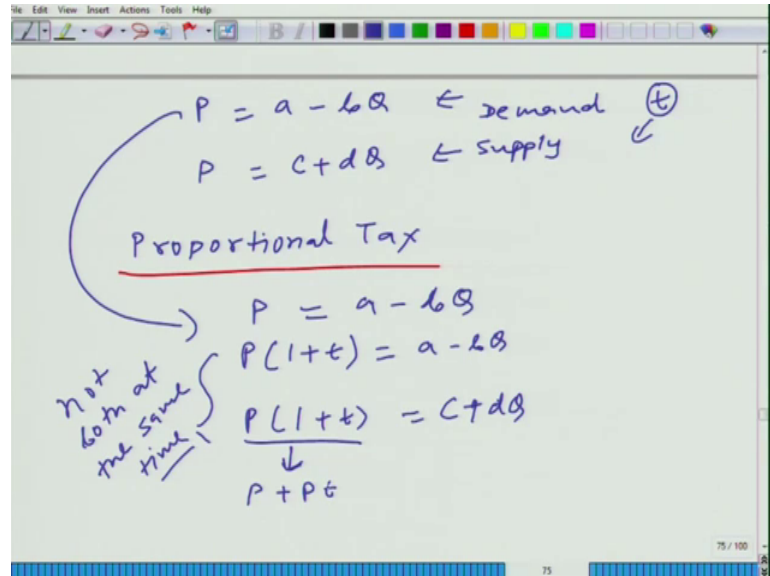 File Edit View Insert Actions Tools Help
B I
P = a - bQ ← Demand t
P = c + dQ ← supply
Proportional Tax
P = a - bQ
P(1+t) = a - bQ
P(1+t) = c + dQ
P + Pt
not
both at
the same
time
75 / 100
75